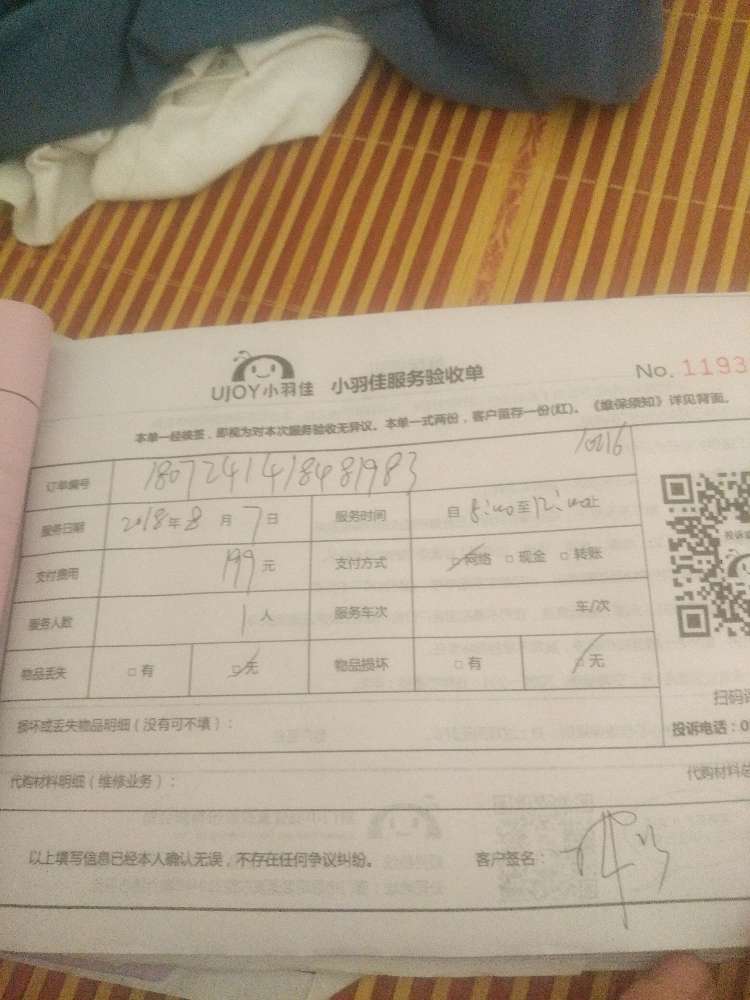 UJOY小羽佳 小羽佳服务验收单 No. 1193
本单一经签签，即视为对本次服务验收无异议。本单一式两份，客户留存一份(红)。《维保须知》详见背面。
订单编号 180724141848198​3 10016
服务日期 2018年8月7日 服务时间 自8:00至12:00止
支付费用 199元 支付方式 □网络 □现金 □转账
服务人数 1人 服务车次 车/次
物品丢失 □有 □无 物品损坏 □有 □无
投诉
扫码
损坏或丢失物品明细（没有可不填）：
投诉电话：0
代购材料明细（维修业务）：
代购材料总
以上填写信息已经本人确认无误，不存在任何争议纠纷。 客户签名：